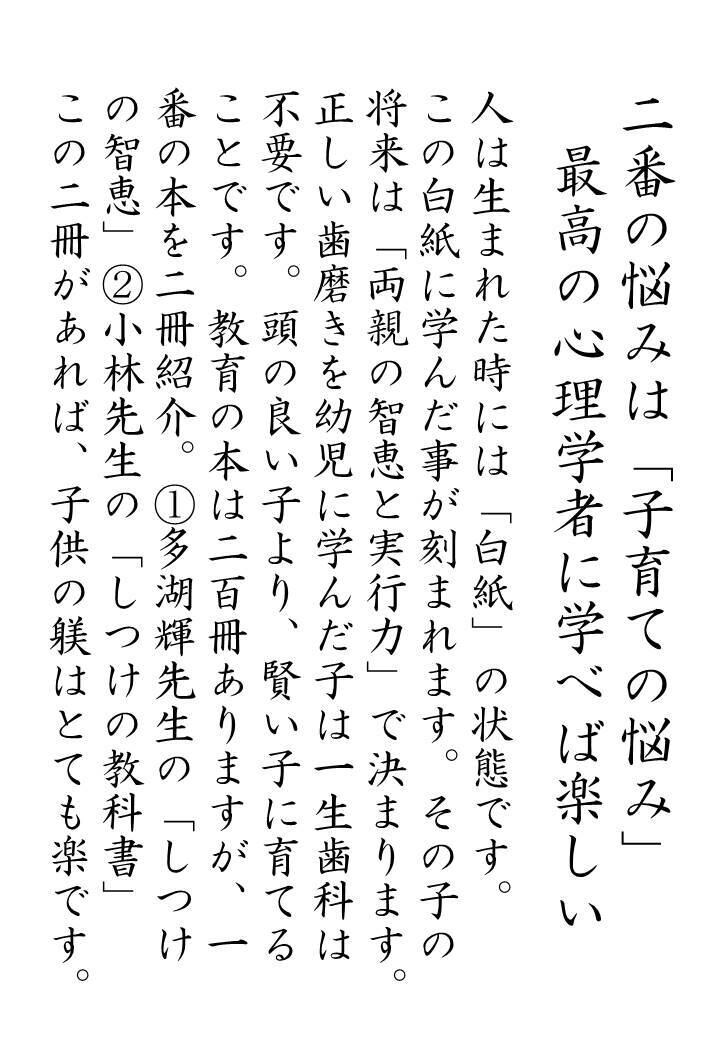 二番の悩みは「子育ての悩み」
最高の心理学者に学べば楽しい
人は生まれた時には「白紙」の状態です。
この白紙に学んだ事が刻まれます。その子の
将来は「両親の智恵と実行力」で決まります。
正しい歯磨きを幼児に学んだ子は一生歯科は
不要です。頭の良い子より、賢い子に育てる
ことです。教育の本は二百冊ありますが、一
番の本を二冊紹介。①多湖輝先生の「しつけ
の智恵」②小林先生の「しつけの教科書」
この二冊があれば、子供の躾はとても楽です。